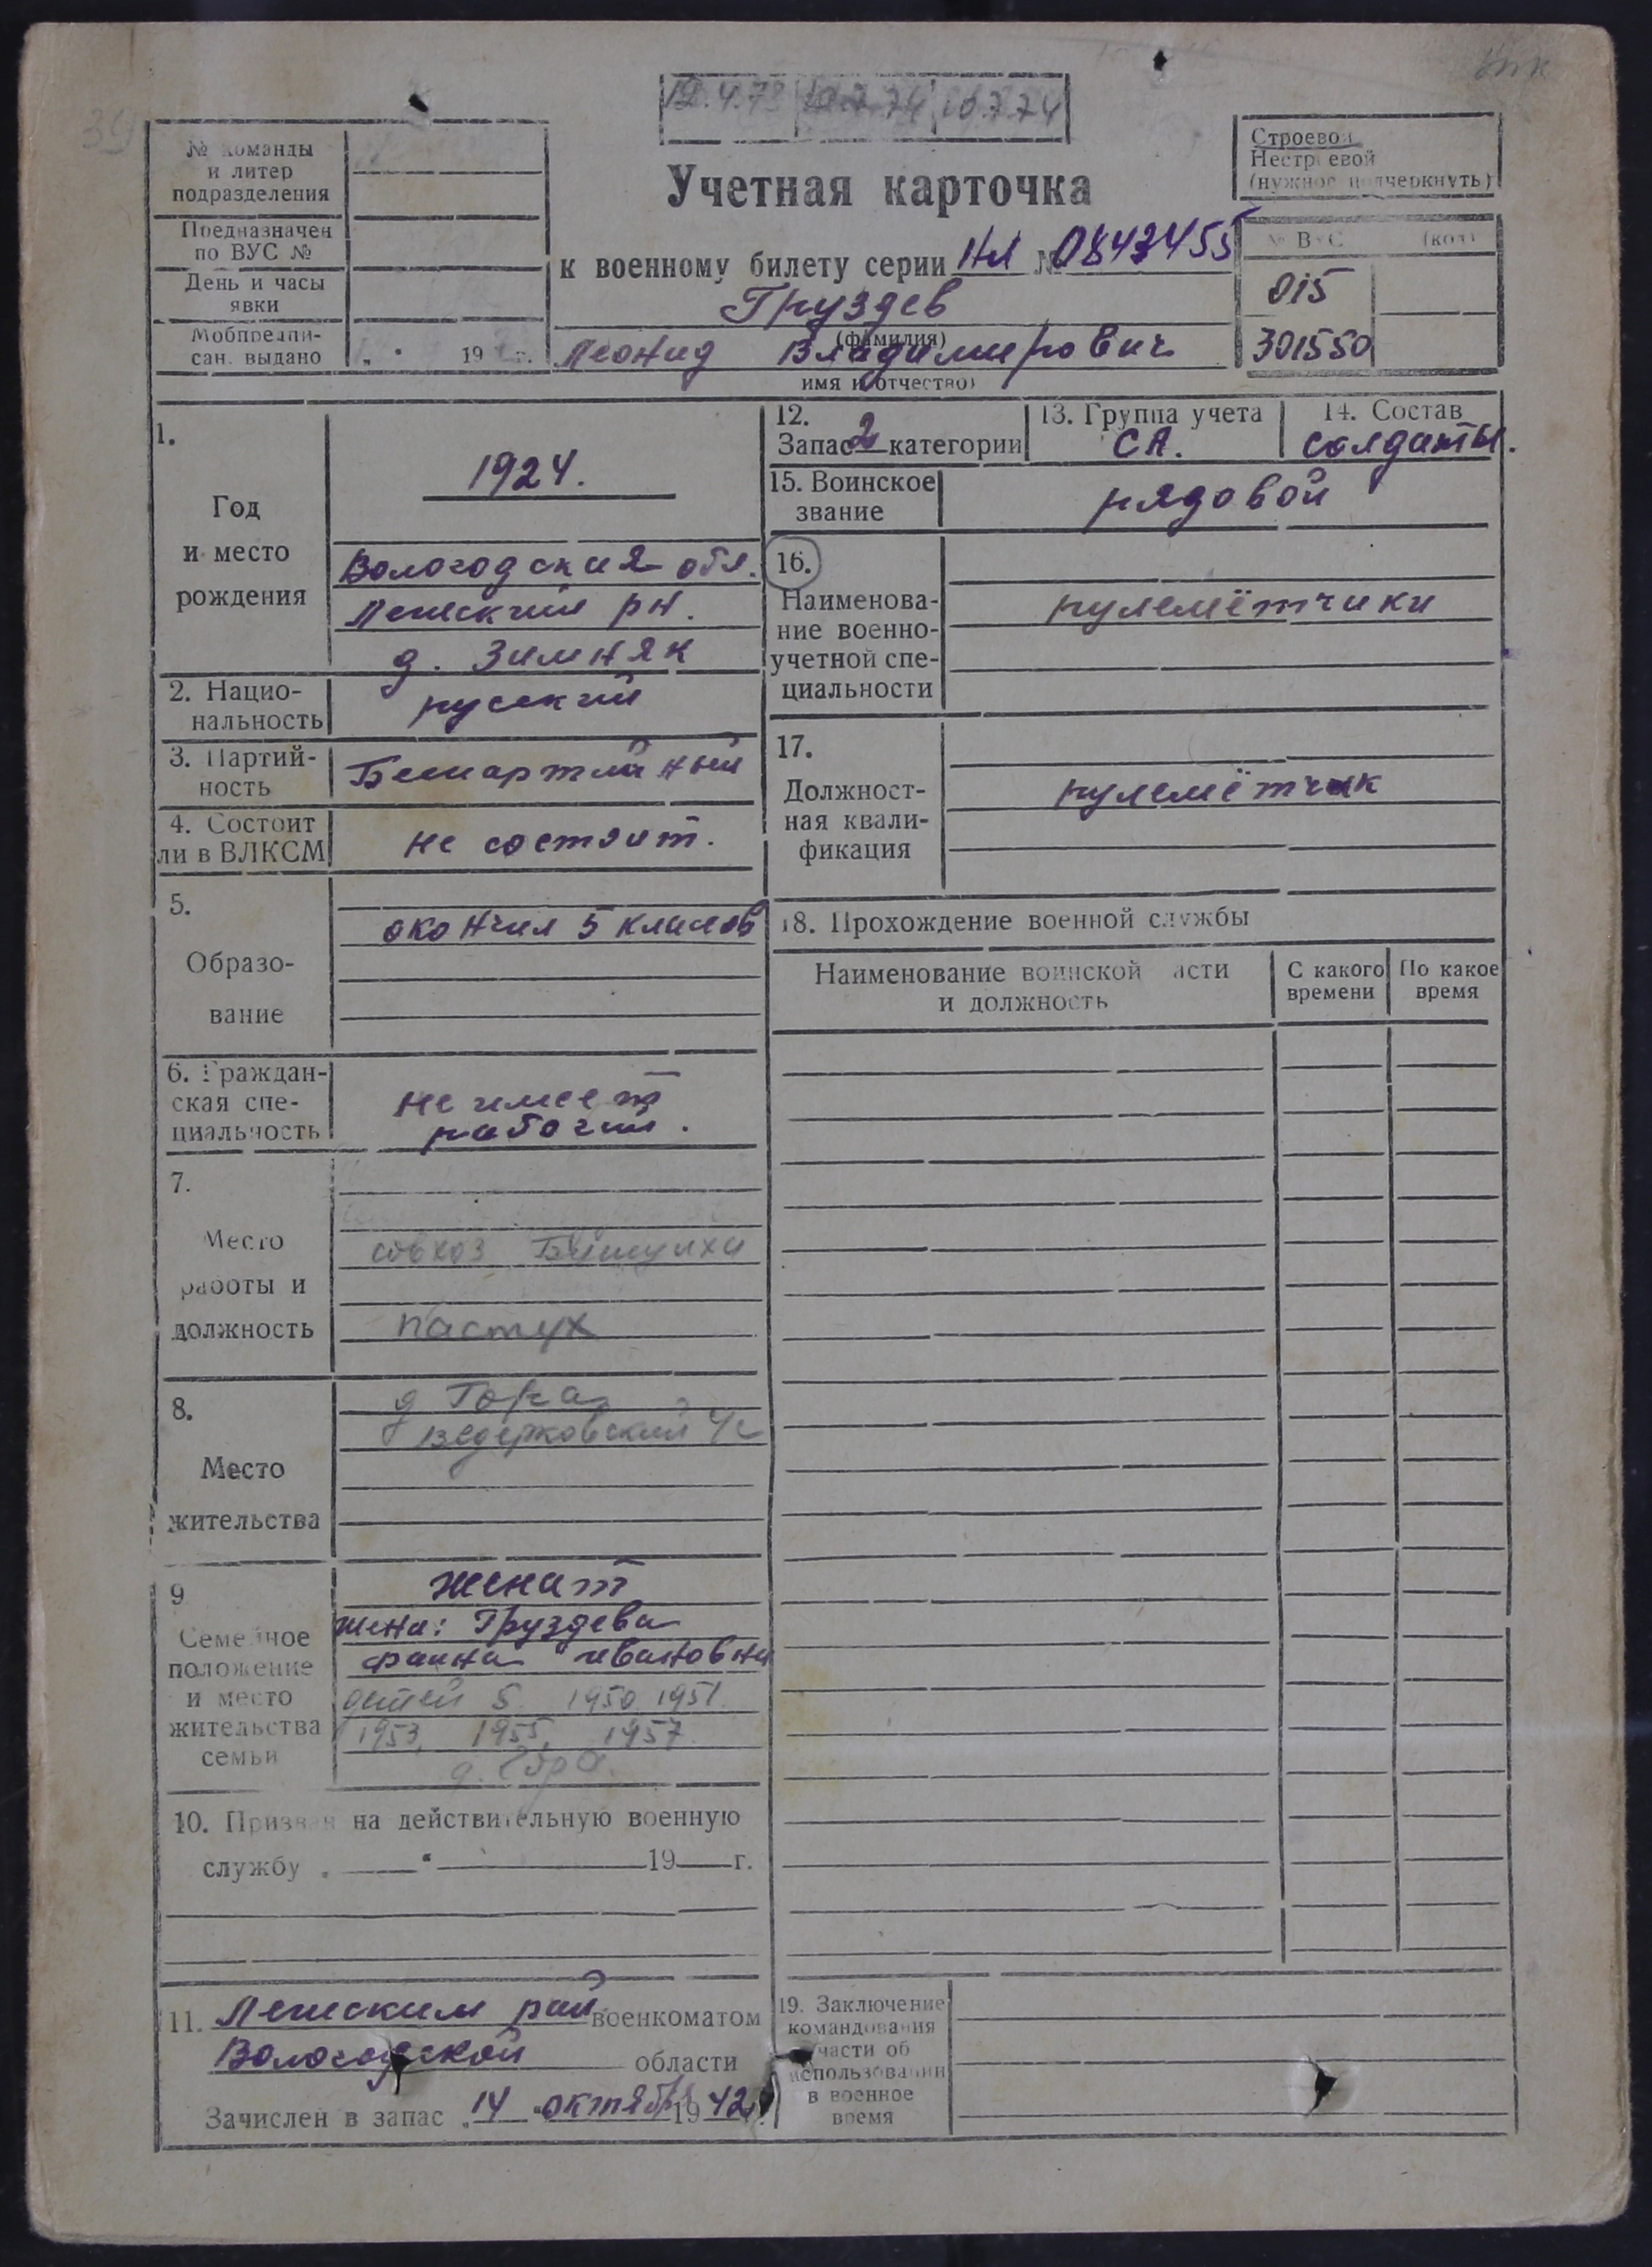 12.4.73 10.7.74 10.7.74
№ команды
и литер
подразделения
Предназначен
по ВУС №
День и часы
явки
Мобпредпи-
сан. выдано „ " 19 г.
Строевой
Нестроевой
(нужное подчеркнуть)
Учетная карточка
к военному билету серии НЛ № 0847455
Груздев
(фамилия)
Леонид Владимирович
имя и отчество)
№ ВУС (код)
015
301550
1.
Год
и место
рождения
1924.
Вологодская обл.
р-н.
д. Зимняк
2. Нацио-
нальность
русский
3. Партий-
ность
Беспартийный
4. Состоит
ли в ВЛКСМ
не состоит.
5.
Образо-
вание
окончил 5 классов
6. Граждан-
ская спе-
циальность
не имеет
рабочий.
7.
Место
работы и
должность
совхоз
пастух
8.
Место
жительства
д Гора
с/с
9
Семейное
положение
и место
жительства
семьи
женат
жена: Груздева
Фаина Ивановна
детей 5 1950 1951
1953, 1955, 1957
д. Гора.
10. Призван на действительную военную
службу „ " 19 г.
11. рай военкоматом
Вологодской области
Зачислен в запас „14 " октября 1942 г.
12.
Запас 2 категории
13. Группа учета
СА.
14. Состав
солдаты.
15. Воинское
звание
рядовой
16.
Наименова-
ние военно-
учетной спе-
циальности
пулемётчики
17.
Должност-
ная квали-
фикация
пулемётчик
18. Прохождение военной службы
Наименование воинской части
и должность
С какого
времени
По какое
время
19. Заключение
командования
части об
использовании
в военное
время